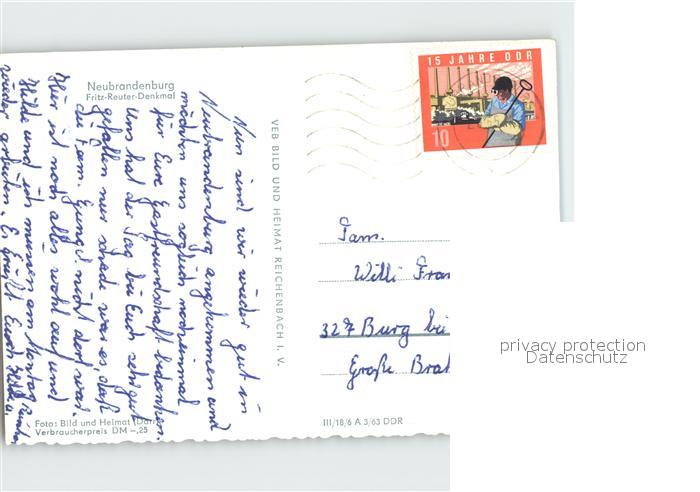 Neubrandenburg
Fritz-Reuter-Denkmal
Nun sind wir wieder gut in
Neubrandenburg angekommen und
möchten uns sogleich nocheinmal
für Eure Gastfreundschaft bedanken.
Uns hat der Tag bei Euch sehr gut
gefallen nur schade war es daß
die Fam. nicht dort war.
Hier ist noch alles wohl auf und
Hilde und ich müssen am Montag
wieder arbeiten. Es grüßt Euch
Foto: Bild und Heimat
Verbraucherpreis DM -,25
VEB BILD UND HEIMAT REICHENBACH I. V.
III/18/6 A 3/63 DDR
15 JAHRE DDR
10
Fam.
Willi Fran
327 Burg bei
Große Brah
privacy protection
Datenschutz